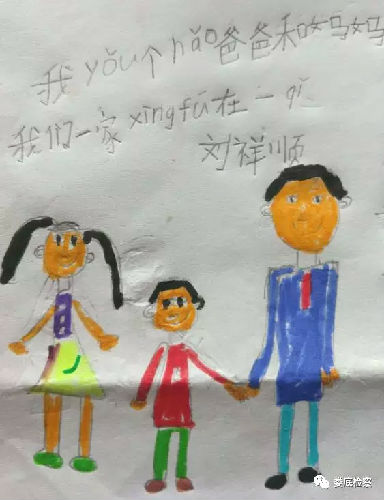 我yǒu个hǎo爸爸和妈妈
我们一家xìngfú在一qǐ
刘祥顺
娄底检察